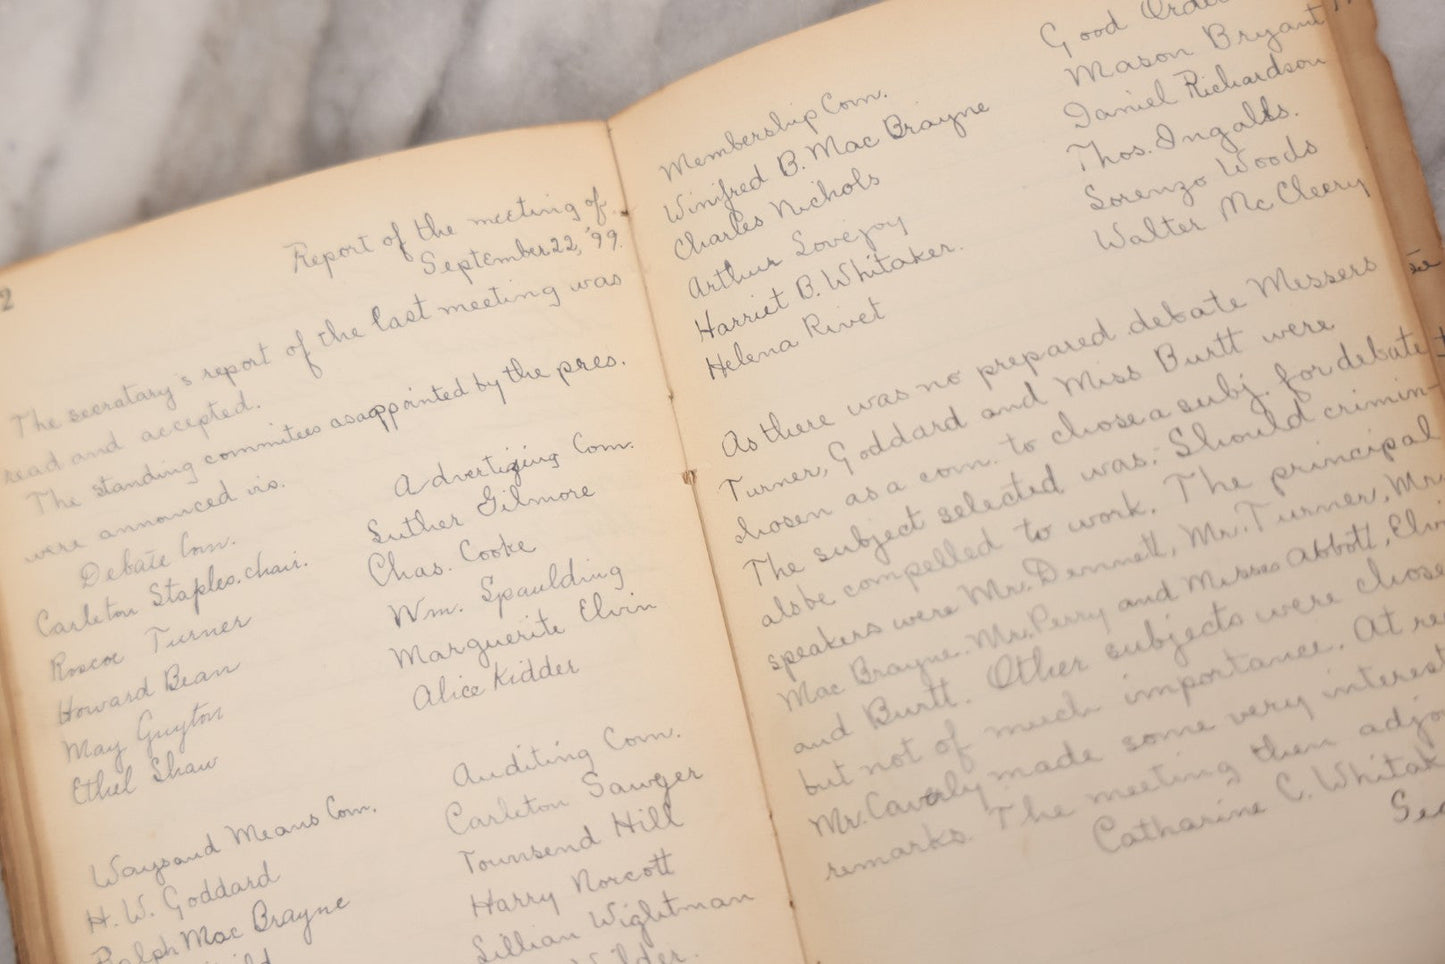 2
Report of the meeting of
September 22, '99.
The secratary's report of the last meeting was
read and accepted.
The standing commitees as appointed by the pres.
were announced vis.
Debate Com.
Carleton Staples. chair.
Roscoe Turner
Howard Bean
May Guyton
Ethel Shaw
Ways and Means Com.
H. W. Goddard
Ralph Mac Brayne
Advertizing Com.
Luther Gilmore
Chas. Cooke
Wm. Spaulding
Marguerite Elvin
Alice Kidder
Auditing Com.
Carleton Sawyer
Townsend Hill
Harry Norcott
Lillian Wightman
Wilder.
Membership Com.
Winifred B. Mac Brayne
Charles Nichols
Arthur Lovejoy
Harriet B. Whitaker.
Helena Rivet
Good Order
Mason Bryant
Daniel Richardson
Thos. Ingalls.
Lorenzo Woods
Walter Mc Cleery
As there was no prepared debate Messers
Turner, Goddard and Miss Burtt were
chosen as a com. to chose a subj. for debate
The subject selected was:- Should crimin-
als be compelled to work. The principal
speakers were Mr. Dennett, Mr. Turner, Mr.
Mac Brayne. Mr. Perry and Misses Abbott, Elvin
and Burtt. Other subjects were chose
but not of much importance. At re
Mr. Caverly made some very interest
remarks. The meeting then adjo
Catharine C. Whitak
Sec